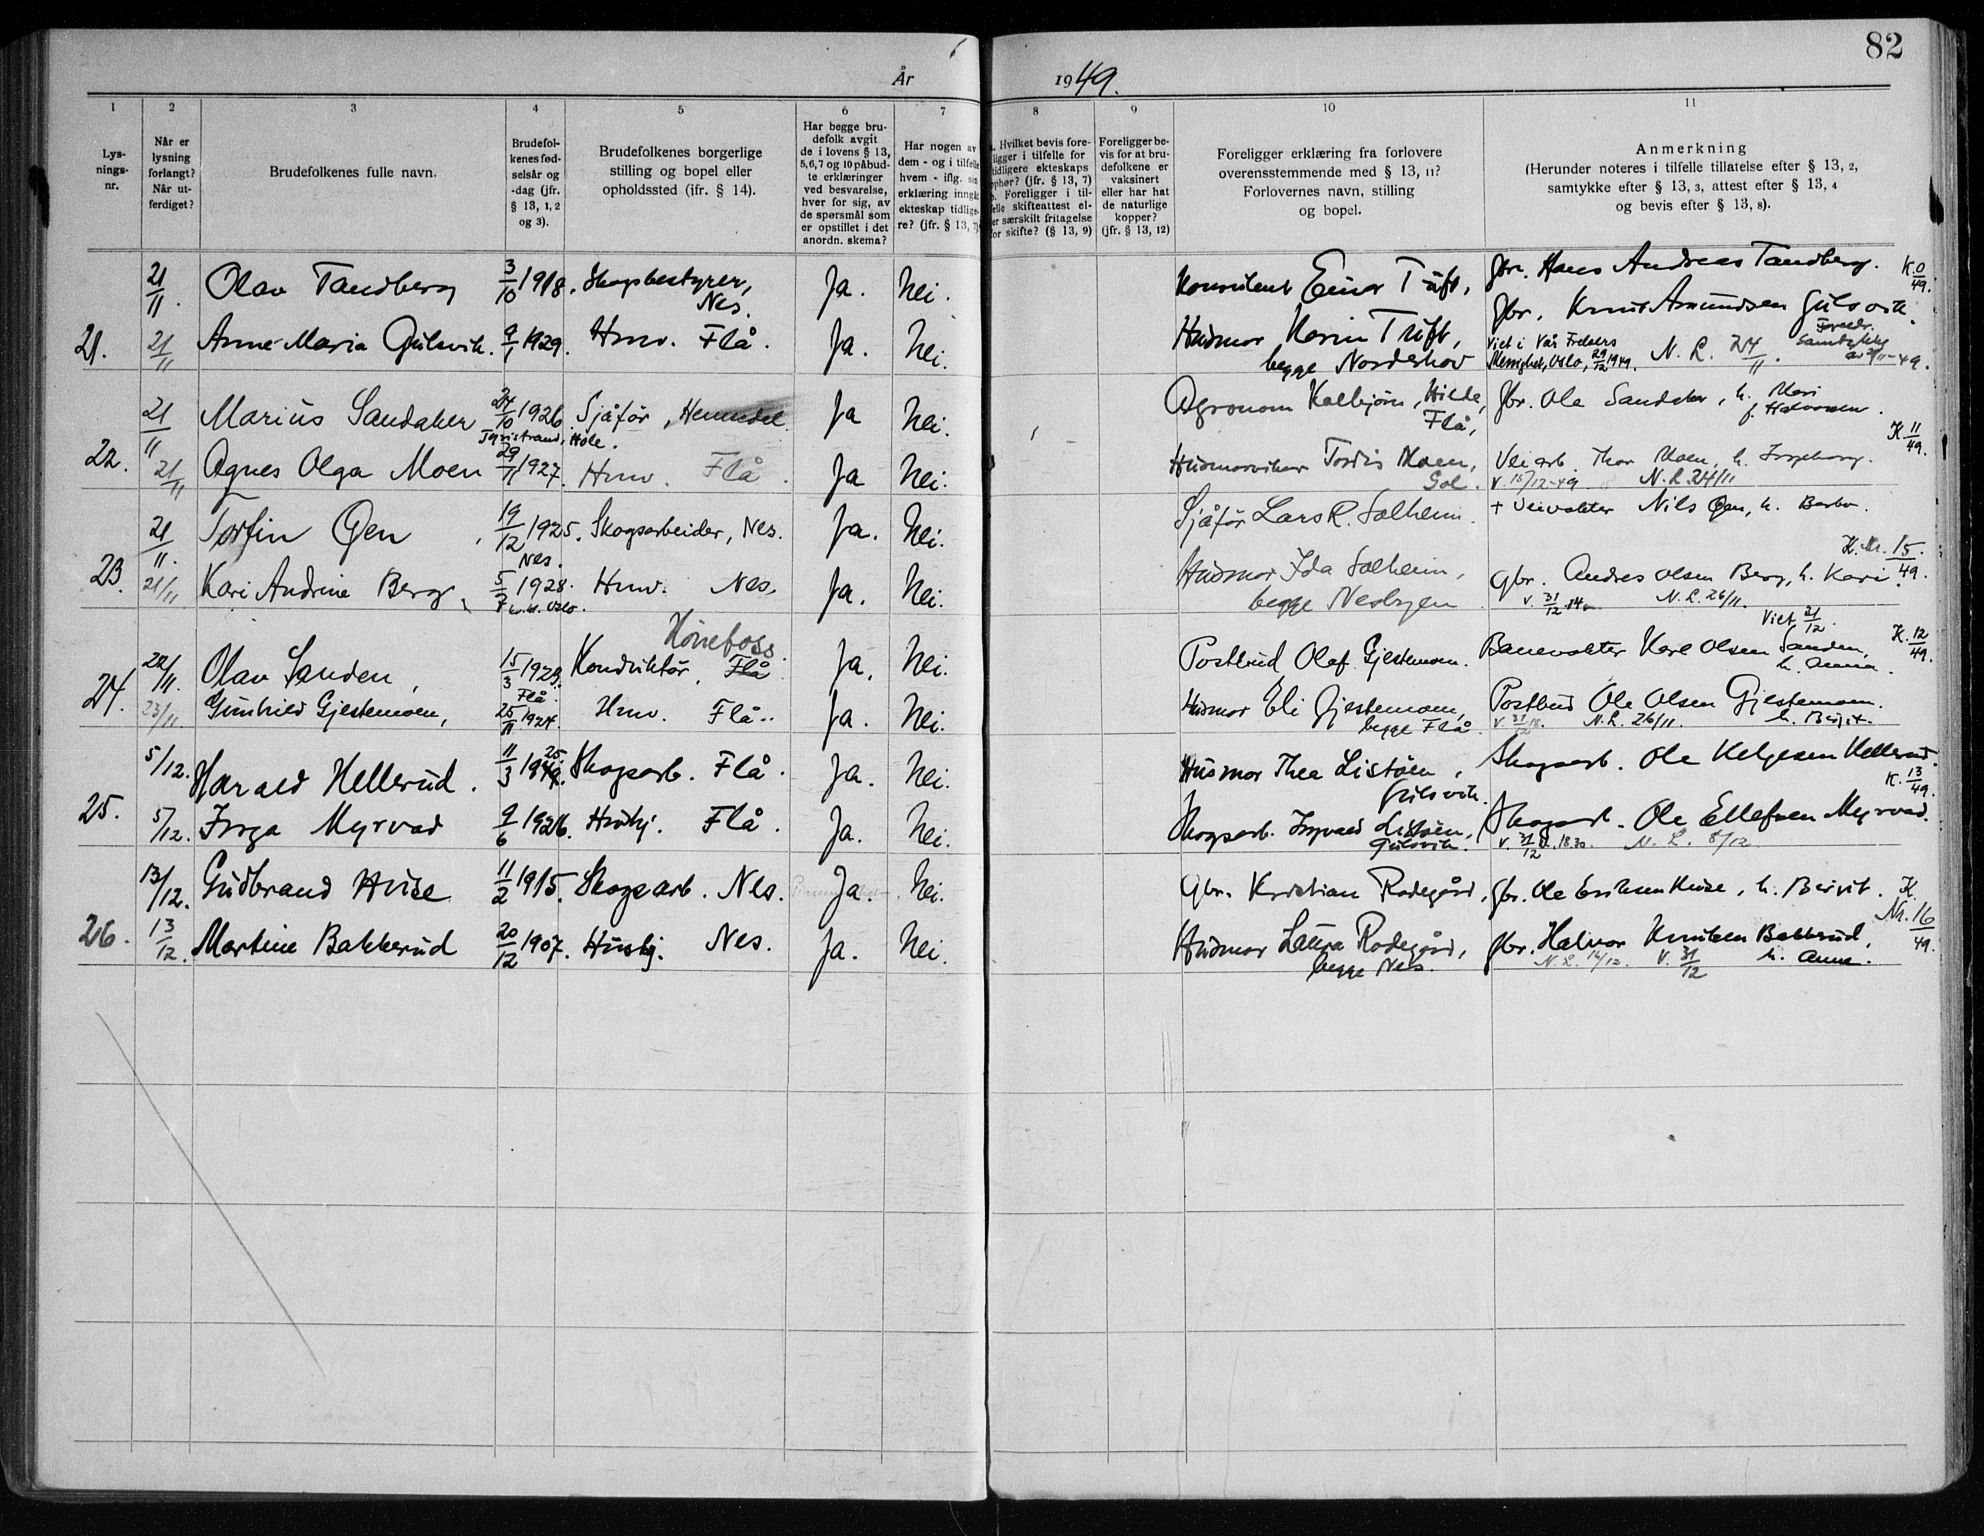 82
År 1949.
1 2 3 4 5 6 7 8 9 10 11
Lys-
nings-
nr.
Når er
lysning
forlangt?
Når ut-
ferdiget?
Brudefolkenes fulle navn.
Brudefol-
kenes fød-
selsår og
-dag (jfr.
§ 13, 1, 2
og 3).
Brudefolkenes borgerlige
stilling og bopel eller
opholdssted (ifr. § 14).
Har begge bru-
defolk avgit
de i lovens § 13,
5, 6, 7 og 10 påbud-
te erklæringer
ved besvarelse,
hver for sig, av
de spørsmål som
er opstillet i det
anordn. skema?
Har nogen av
dem - og i tilfelle
hvem - iflg. sin
erklæring inngåt
ekteskap tidlige-
re? (jfr. § 13, 7)
a. Hvilket bevis fore-
ligger i tilfelle for
tidligere ekteskaps
ophør? (jfr. § 13, 7)
b. Foreligger i til-
felle skifteattest el-
ler særskilt fritagelse
for skifte? (§ 13, 9)
Foreligger be-
vis for at bru-
defolkene er
vaksinert
eller har hat
de naturlige
kopper?
(jfr. § 13, 12)
Foreligger erklæring fra forlovere
overensstemmende med § 13, 11?
Forlovernes navn, stilling
og bopel.
Anmerkning
(Herunder noteres i tilfelle tillatelse efter § 13, 2,
samtykke efter § 13, 3, attest efter § 13, 4
og bevis efter § 13, 8).
21/11. Olav Tandberg 3/10 1918. Skogbestyrer, Nes. Ja. Nei. Konsulent Einar Tuft, Gbr. Hans Andreas Tandberg. K 0/49.
21. 21/11 Anne-Maria Gulsvik. 9/1 1929. Hmv. Flå. Ja. Nei. Husmor Karin Tuft, begge Norderhov Gbr. Knut Amundsen Gulsvik.
Viet i Vår Frelsers Menighet, Oslo, 29/12 1949. N. L. 24/11. Foreldr. Samtykke av 21/11-49.
21/11 Marius Sandaker 24/10 1926 Tyristrand, Hole. Sjåfør, Hemsedal Ja Nei. Agronom Kolbjørn Hilde, Flå, Gbr. Ole Sandaker, h. Mari f. Halvorsen. K 11/49.
22. 21/11 Agnes Olga Moen 29/11 1927. Hmv. Flå. Ja Nei. Husmorvikar Tordis Moen, Gol. Veiarb. Thor Moen, h. Ingeborg.
V. 15/12-49 N. L 24/11
21/11. Torfin Øen 19/12 1925. Nes. Skogsarbeider, Nes. Ja. Nei. Sjåfør Lars R. Solheim. + Veivokter Nils Øen, h. Barbo.
K. Nr. 15/49.
23. 21/11 Kari Andrine Berg 1928. Hmv. Nes. Ja. Nei. Husmor Ida Solheim, begge Nesbyen Gbr. Andres Olsen Berg, h. Kari.
V. 31/12 N. L. 26/11.
Viet 31/12.
Hønefoss.
22/11. Olav Sanden, 15/3 1923. Flå. Konduktør, Flå Ja. Nei. Postbud Olaf Gjestemoen. Banevokter Karl Olsen Sanden, h. Anna. K. 12/49.
24. 23/11. Gunhild Gjestemoen, 25/11 1924. Hmv. Flå. Ja. Nei. Husmor Eli Gjestemoen, begge Flå. Postbud Ole Olsen Gjestemoen. h. Birgit.
V. 31/12 18. N. L. 26/11.
5/12. Harald Hellerud. 11/3 1925. Skogsarb. Flå. Ja. Nei. Husmor Thea Listøen, Gulsvik. Skogsarb. Ole Helgesen Hellerud. K. 13/49.
25. 5/12. Inga Myrvad 9/6 1926. Hushj. Flå. Ja. Nei. Skogsarb. Ingvald Listøen, Gulsvik. Skogsarb. Ole Ellefsen Myrvad.
V. 31/12 kl. 18.30. N. L. 8/12
13/12. Gudbrand Huse 11/2 1915. Skogsarb. Nes. Ja. Nei. Gbr. Kristian Rodegård, Gbr. Ole Eriksen Huse, h. Birgit. K. Nr. 16/49.
26. 13/12. Martine Bakkerud 20/12 1907. Hushj. Nes. Ja. Nei. Husmor Laura Rodegård, begge Nes. Gbr. Halvor Knutsen Bakkerud, h. Anna.
N. L. 14/12. V. 31/12